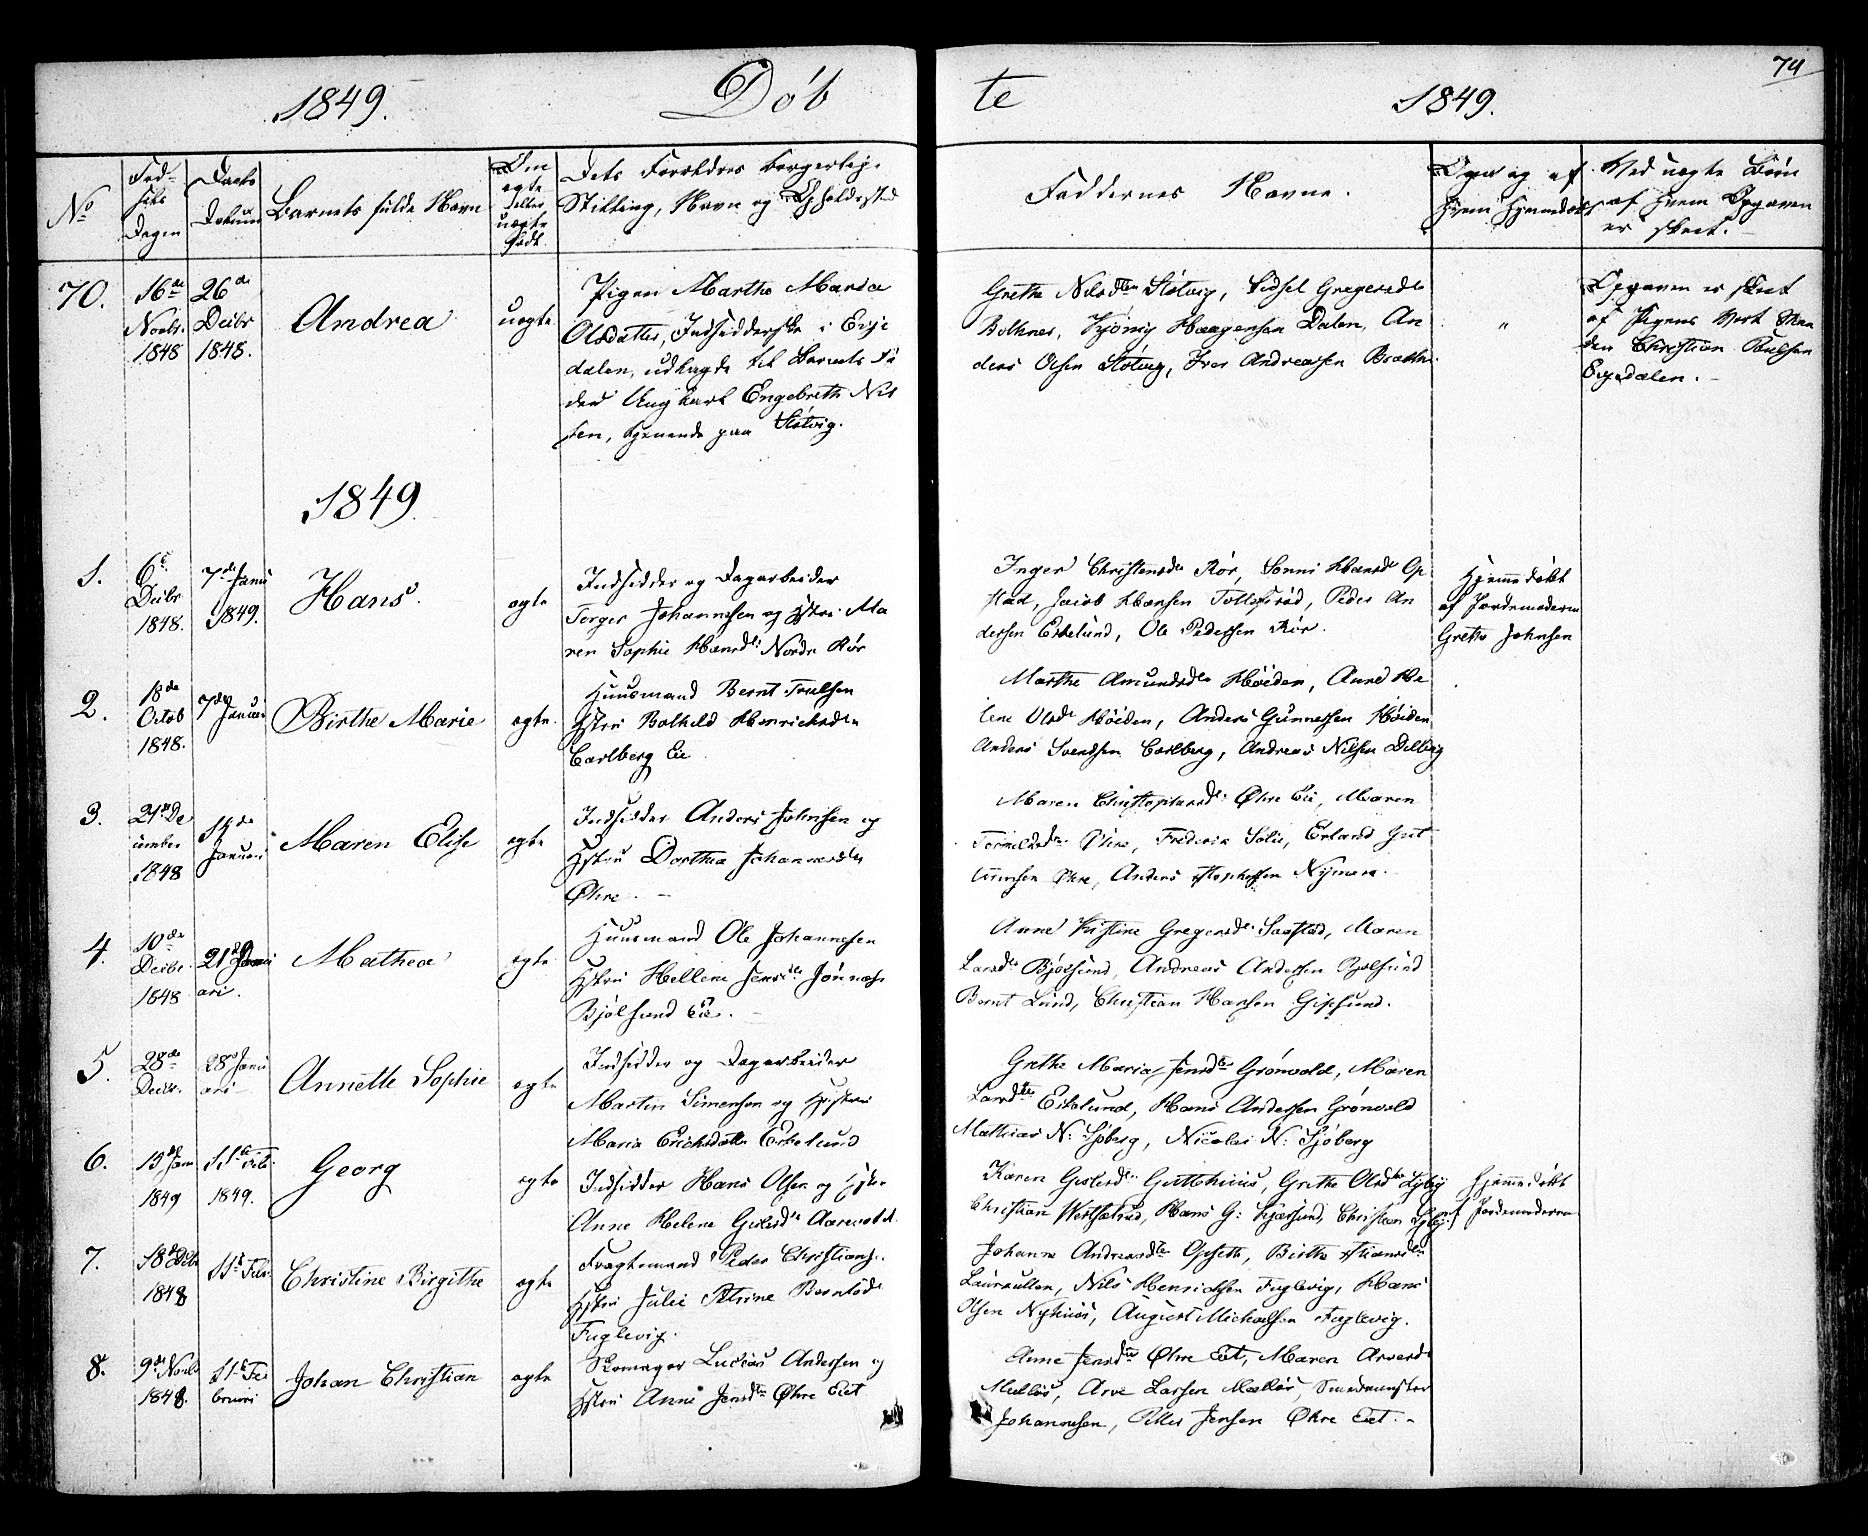 74
1849. Døb te 1849.
No
Fød-
sels
Dagen
Daabs
Datum
Barnets fulde Navn
Om
ægte
eller
uægte
født.
Dets Forældres borgerlige
Stilling, Navn og Opholdssted
Faddernes Navne.
Om og af
hvem hjemmedøbt
Ved uægte Børn
af hvem Opgaven
er skeet.
70.
16de
Novbr.
1848
26de
Decbr
1848.
Andrea
uægte
Pigen Marthe Maria
Olsdatter, Indsidderske i Evje
dalen, udlagde til Barnets Fa
der Ungkarl Engebreth Nil
sen, tjenende paa Støtvig.
Grethe Nilsdtr Støtvig, Sidsel Gregersdtr
Bolkner, Haagensen Dalen, An
ders Olsen Støtvig, Iver Andreassen Brække
"
Opgaven er skeet
af Pigens Vert
Christian Paulsen
Evjedalen.
1849
1.
6te
Decbr
1848.
7de Janu
1849.
Hans.
ægte
Indsidder og Dagarbeider
Torger Johannesen og Hstru Ma
ren Sophie Hansdtr Nordre Rør
Inger Christensdtr Rør, Hansdtr Op
stad, Jacob Hansen Tollefsrød, Peder An
dersen Ekelund, Ole Pedersen Rør.
Hjemmedøbt
af Jordemoderen
Grethe Johnsen
2.
18de
Octob
1848.
7de Januar
Birthe Marie
ægte.
Huusmand Bernt Truelsen
Hstru Bolhild Henrichsdtr
Carlberg Eie
Marthe Amundsdtr Høiden, Anne He
lene Olsdtr Høiden, Anders Gunnersen Høiden
Anders Svendsen Carlberg, Andreas Nilsen Dilling
3.
21de De
cember
1848
14de
Januari
Maren Elise
ægte
Indsidder Anders Johnsen og
Hstru Dorthea Johannesdtr
Øhre.
Maren Christophersdtr Øhre Eie, Maren
Øhre, Frederik Solie, Erland Gut
tormsen Øhre, Anders
4.
10de
Decbr.
1848
21de Janu
ari.
Mathea
ægte
Huusmand Ole Johannesen
Hstru Hellene Jensdtr
Bjølsund Eie.
Anne Kistine Gregersdtr Saastad, Maren
Larsdtr Bjølsund, Andreas Andersen Bjølsund
Bernt Lund, Christian Hansen Gipsund.
5.
28de
Decbr.
28de Janu
ari
Annette Sophie
ægte
Indsidder og Dagarbeider
Martin Simensen og Hustru
Maria Erichsdatter Ekelund
Grethe Maria Jensdtr Grønvold, Maren
Larsdtr Ekelund, Hans Andersen Grønvold
Mathias N: Sjøberg, Nicolai N: Sjøberg
6.
Janu
1849
11te Feb.
1849.
Georg
ægte
Indsidder Hans Olsen og Hstru
Anne Helene Gulersdtr Aarevold.
Karen Gulersdtr, Grethe Olsdtr Lyby
Christian, Hans G: Kjærsund, Christian Lyby.
Hjemmedøbt
af Jordemoderen
7.
18de Decbr
1848
11te Febr.
Christine Birgithe
ægte
Fragtemand Peder Christians.
Hstru Julie Petrine Berntsdtr
Fuglevig.
Johanne Andreasdtr Opseth, Birthe
Laurkullen, Nils Henrichsen Fuglevig, Hans
Olsen Nyhuus, August Michaelsen Fuglevig.
8.
9de Novbr
1848.
11te Fe
bruari
Johan Christian
ægte
Skomager Lucias Andersen og
Hstru Anne Jensdtr Øhre Eiet
Anne Jensdtr Øhre Eiet, Maren Arvesdtr
Melløs, Arve Larsen Melløs, Smedmester
Johannesen, Peder Jensen Øhre Eiet.